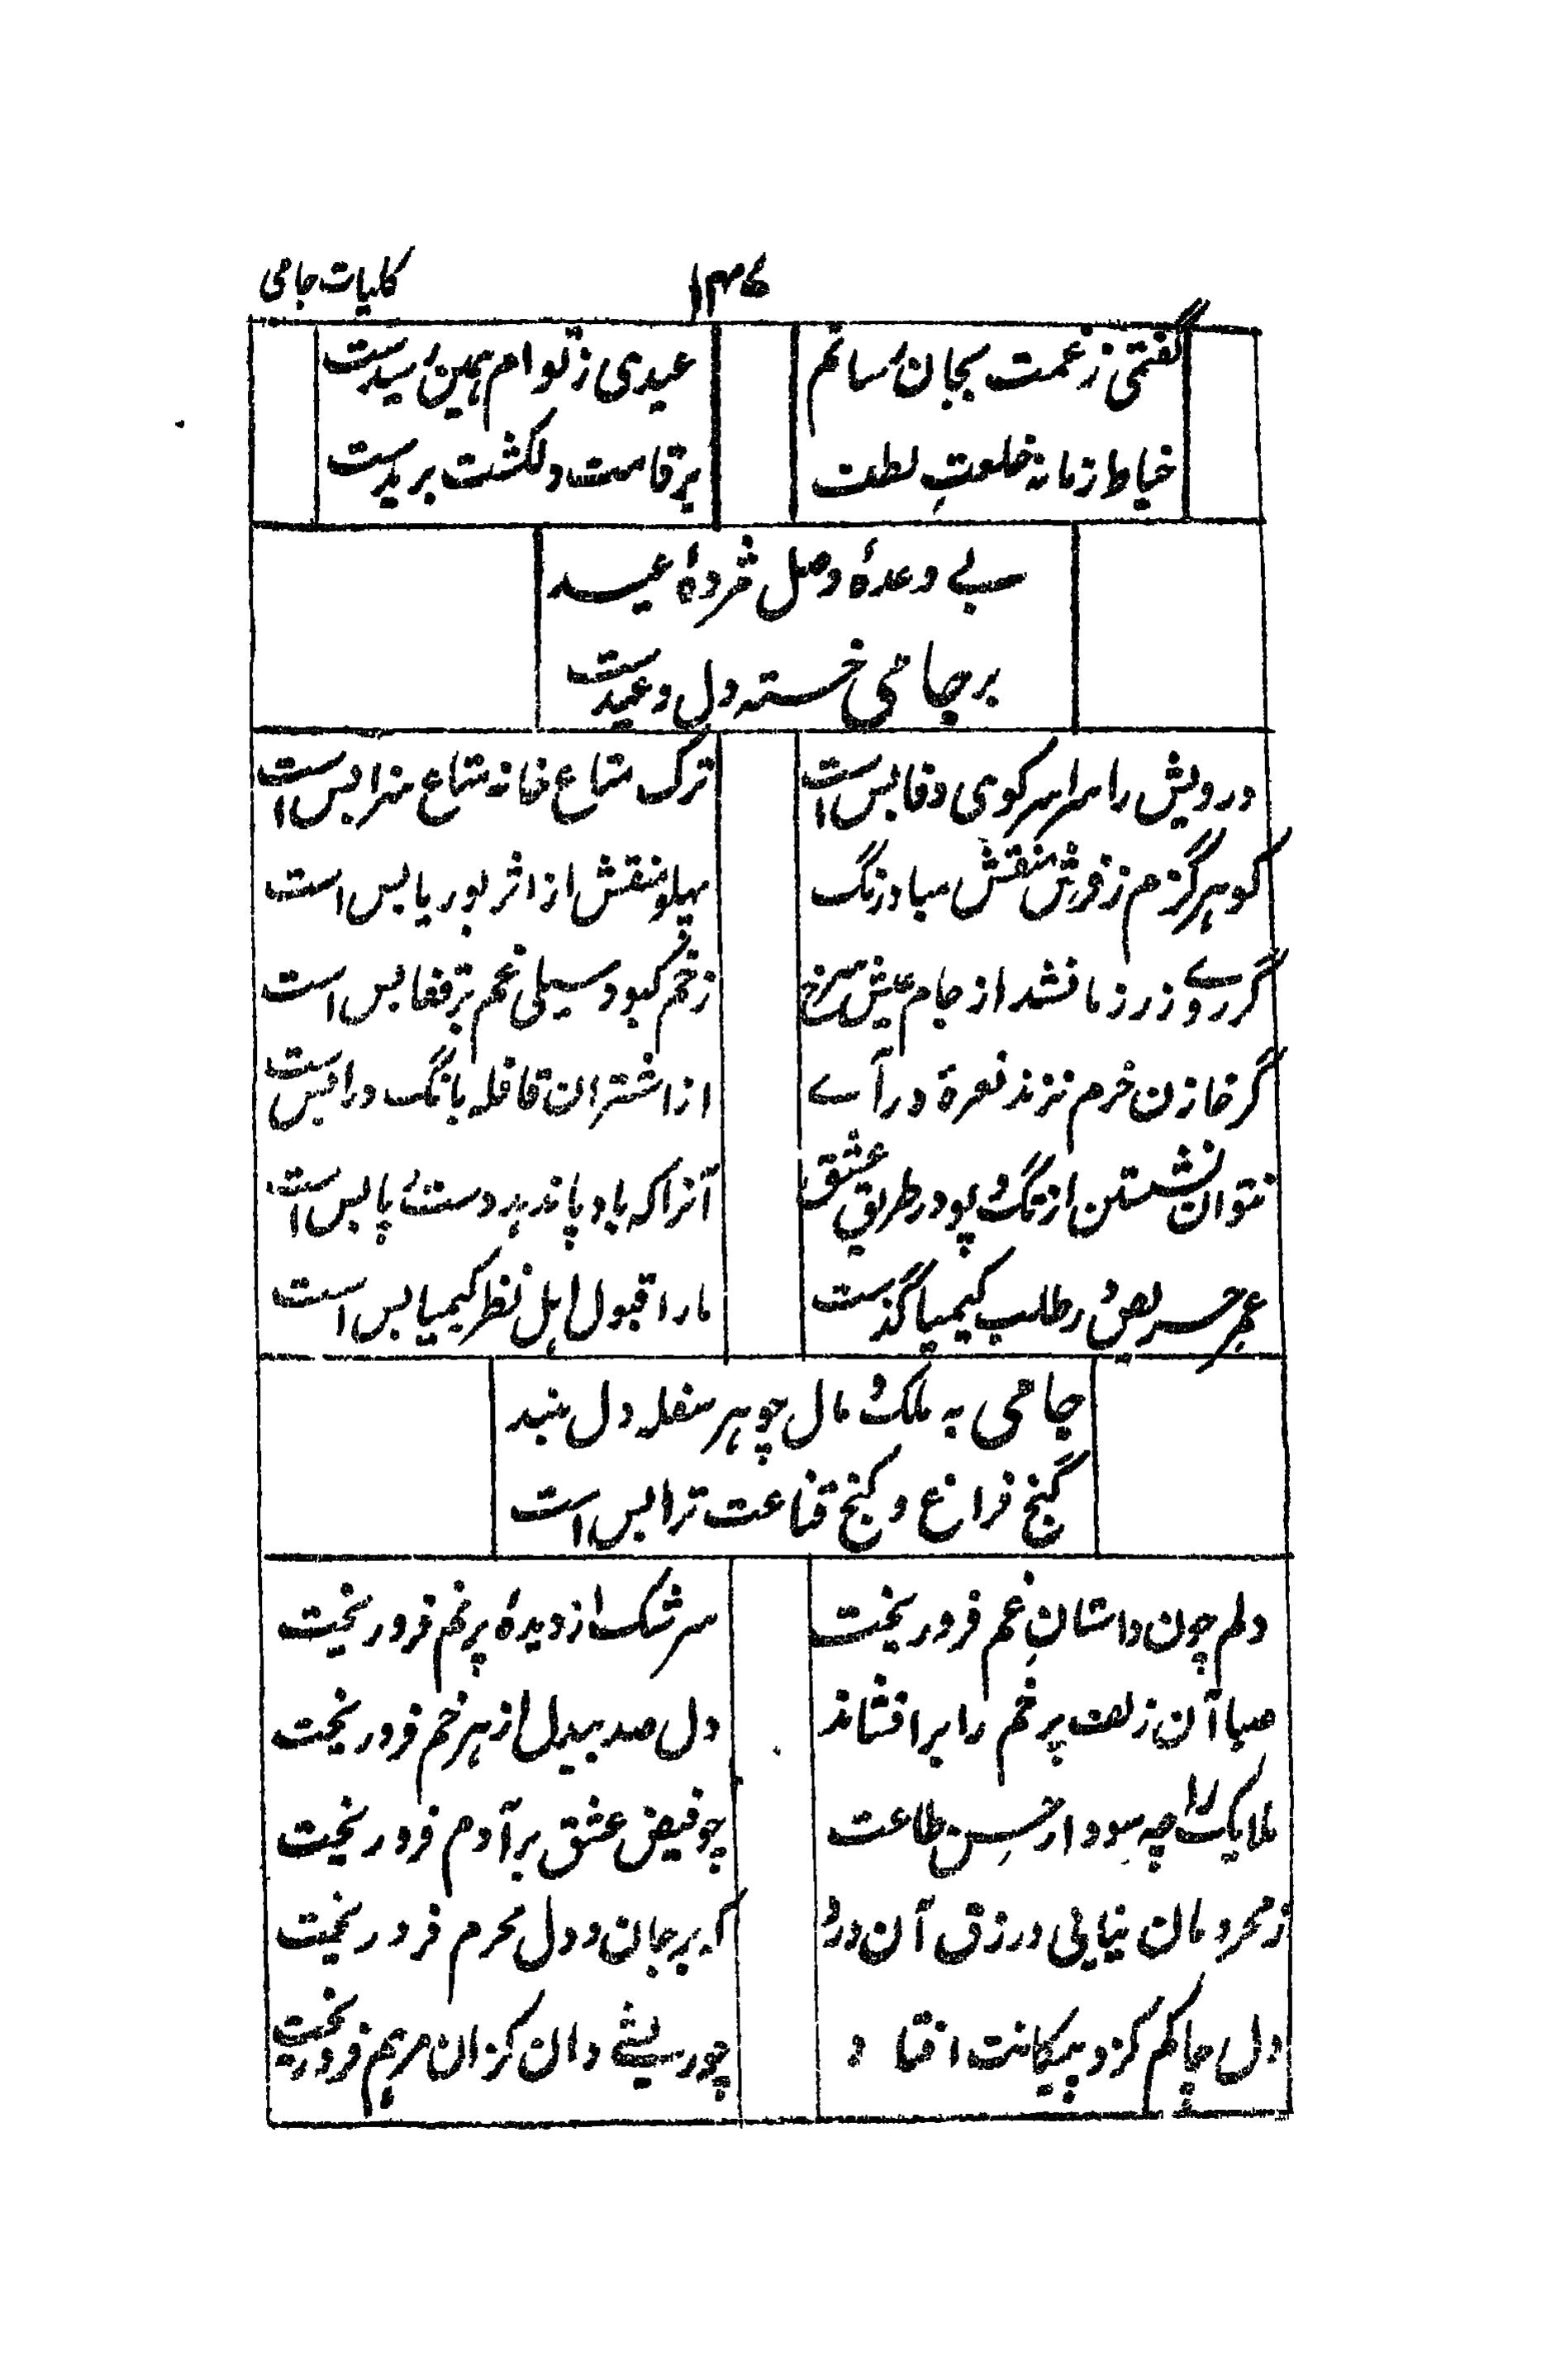 کلیات جامی
۱۴۷
گفتمی ز غمت بجان رسانم
عیدی ز توام همین رسیدست
خیاط زمانه خلعتِ لطف
بر قامت دلکشت بریدست
بے وعدهٔ وصل مژدهٔ عید
بر جامی خسته دل وعیدست
درویش را سرا سر کوی وفا بس است
ترک متاع خانه متاع سرا بس است
گو هرگزم ز فرش منقش مباد رنگ
پهلو منقش از اثر بوریا بس است
گر روے زرد ما نشد از جام عیش سرخ
زخم کبود سیلی غم بر قفا بس است
گر خازن خرم نزند نعرهٔ درآے
از اشتران قافله بانگ درا بس است
نتوان نشستن از تگ و پو در طریق عشق
آنرا که باد پا ندهد دست پا بس است
عمر حریص در طلب کیمیا گذست
ما را قبول اهل نظر کیمیا بس است
جامی به ملک و مال چو هر سفله دل مبند
گنج فراغ و کنج قناعت ترا بس است
دلم چون داستانِ غم فرو ریخت
سرشک از دیدهٔ پر نم فرو ریخت
صبا آن زلف پر خم را برافشاند
دل صد بیدل از هر خم فرو ریخت
ملایک را چه سود از حسنِ طاعت
چو فیض عشق بر آدم فرو ریخت
ز محرومان نیابی در رزق آن درد
که بر جان و دل محرم فرو ریخت
دل چاکم کزو پیکانت افتاد
چو ریشے دان کزان مرهم فرو ریخت